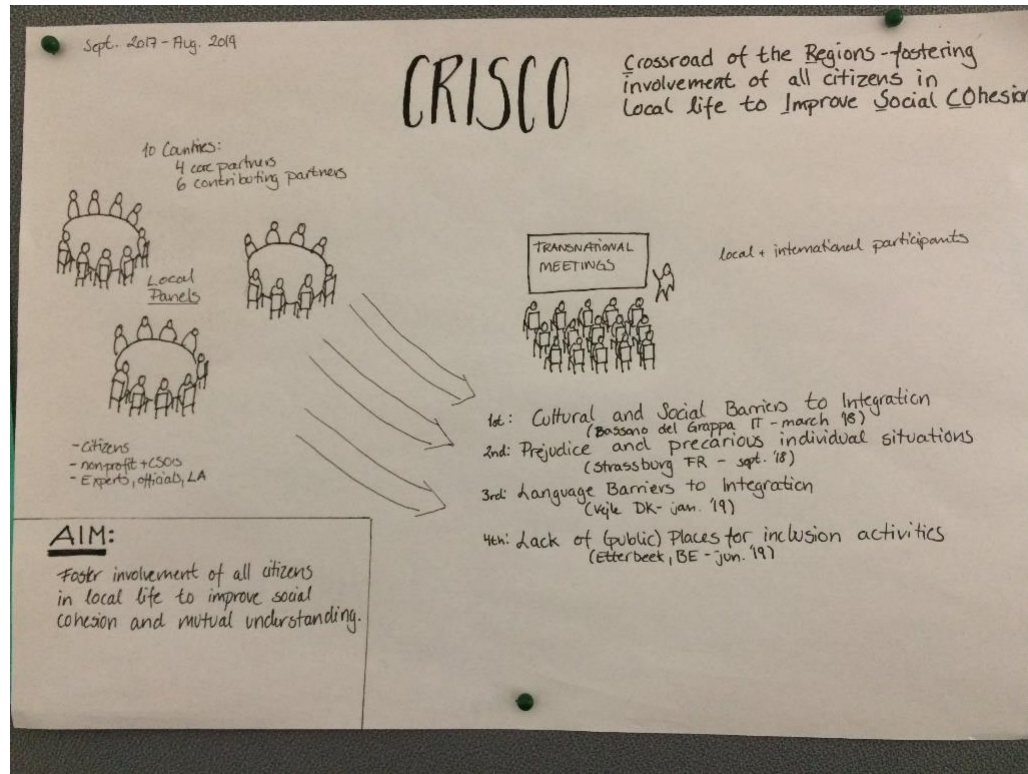 Sept. 2017 - Aug. 2019
CRISCO
Crossroad of the Regions - fostering
involvement of all citizens in
Local life to Improve Social COhesion
10 Countries:
4 core partners
6 contributing partners
Local
Panels
- Citizens
- nonprofit + CSO's
- Experts, officials, LA
TRANSNATIONAL
MEETINGS
local + international participants
1st: Cultural and Social Barriers to Integration
(Bassano del Grappa IT - march '18)
2nd: Prejudice and precarious individual situations
(Strassburg FR - sept. '18)
3rd: Language Barriers to Integration
(Vejle DK - jan. '19)
4th: Lack of (public) Places for inclusion activities
(Etterbeek, BE - jun. '19)
AIM:
Foster involvement of all citizens
in local life to improve social
cohesion and mutual understanding.